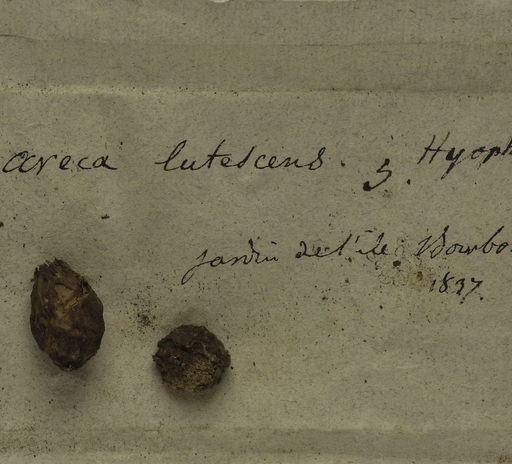 areca lutescens. 5. Hyoph
jardin de l'ile Bourbo
1837.